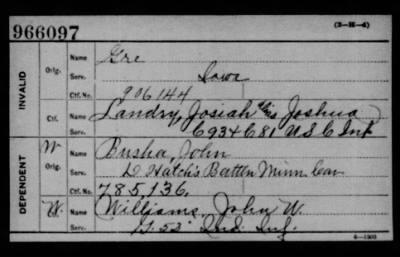 966097
(3-H-4)
INVALID
Orig.
Name Gre
Serv. Iowa
Ctf. No. 906144
Ctf.
Name Landry, Josiah alias Joshua
Serv. C 93 & C 81 U S C Inf
DEPENDENT
W Orig.
Name Busha, John
Serv. D Hatch's Battln Minn Cav
Ctf. No. 785,136.
W. Ctf.
Name Williams, John W.
Serv. 53 Ind. Inf.